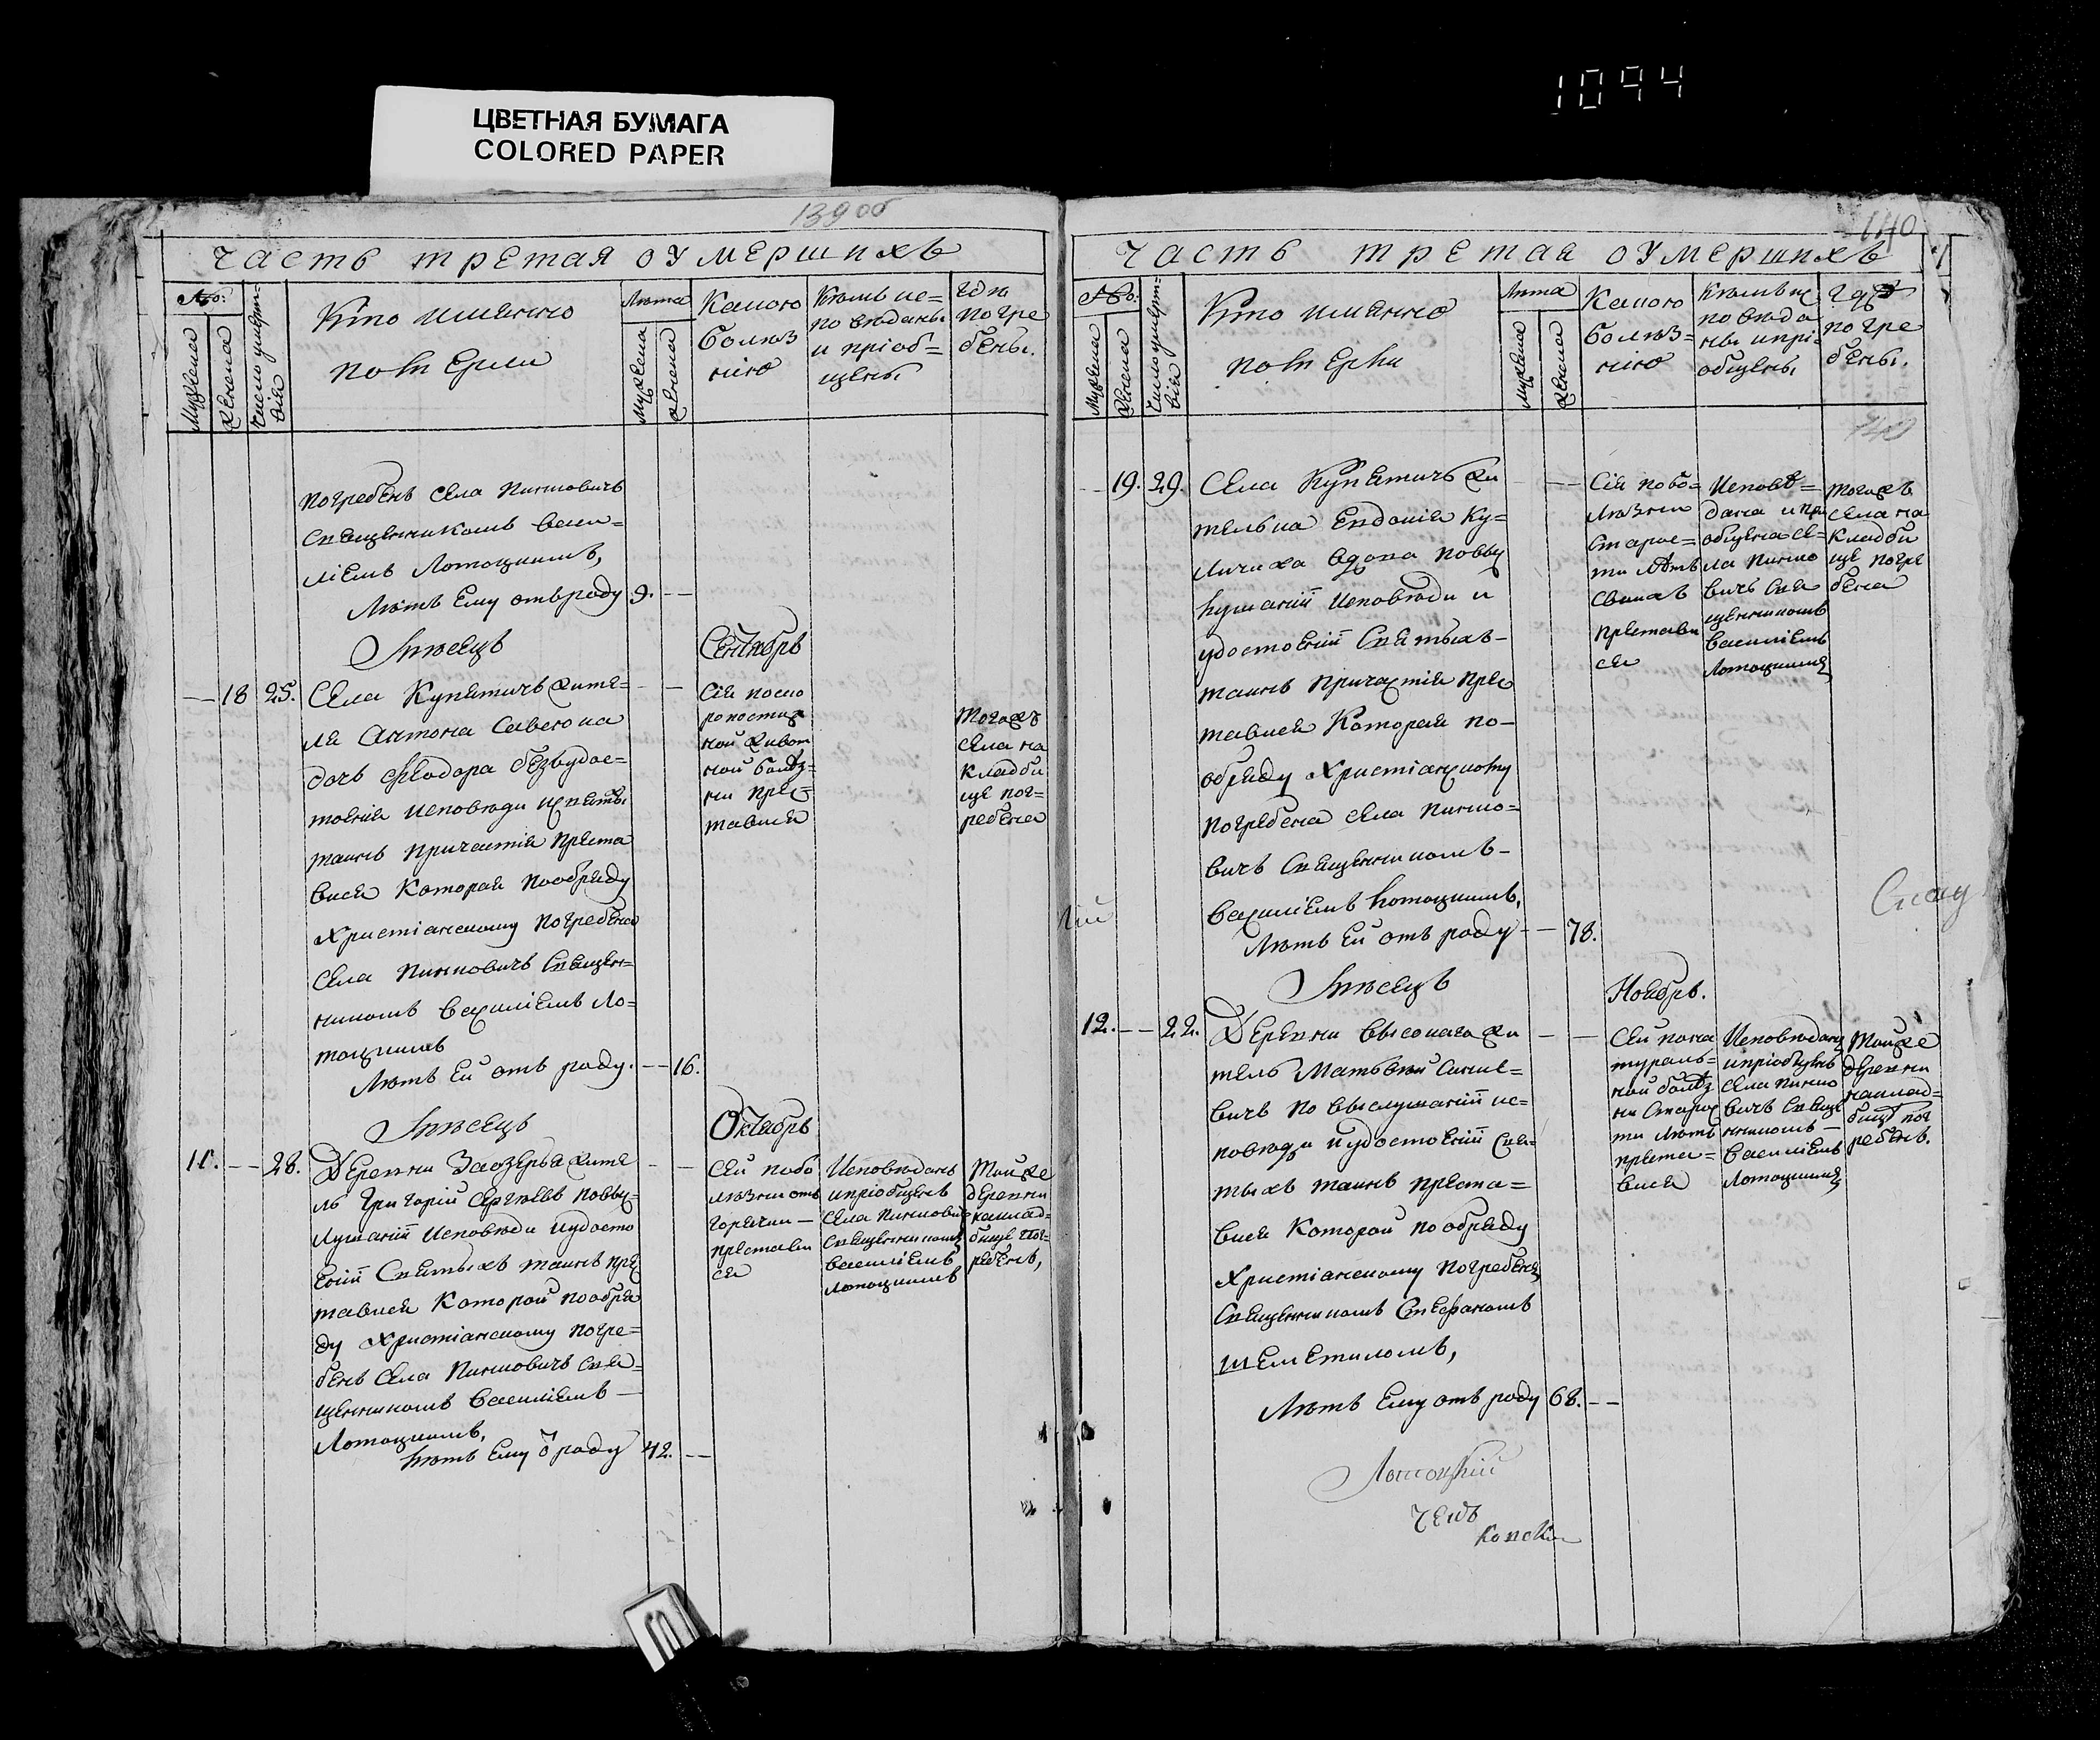 1094
ЦВЕТНАЯ БУМАГА
COLORED PAPER
139об
Часть третая оумершихъ
№о:
Мужеска
Женска
Число умертвія
Кто именно
померли
Лѣта
Мужеска
Женска
Какою
болѣз
нію
Кѣмъ ис=
повѣданы
и пріоб=
щены
Гдѣ
погре
бены.
погребенъ села Пинковичъ
Священникомъ Васи=
ліемъ Лотоцкимъ,
Лѣтъ Ему отъ роду 9. —
Мѣсецъ Сентябрь
— 18 25. Села Купятичъ жите=
ля Антона Савскока
дочь Феодора безъудос=
тоенія исповѣди и святы
таинъ причастія преста
вися Которая пообряду
Христіанскому погребена
Села Пинковичъ Священ=
никомъ Василіемъ Ло=
тоцкимъ
Лѣтъ Ей отъ роду. — 16.
Сія поско
ропостиж
ной живот
ной болѣз=
ни прес=
тавися
тогожъ
села на
кладби
ще пог=
ребена
Мѣсецъ Октябрь
11. — 28. Деревни Заозерья жите
ль Григорій Сергѣевъ повыс=
лушаніи Исповѣди иудосто
еніи Святыхъ таинъ прес
тавися Которой пообря
ду Христіанскому погре=
бенъ Села Пинковичъ Свя=
щенникомъ Василіемъ —
Лотоцкимъ,
Лѣтъ Ему о роду 42. —
Сей побо
лѣзни отъ
горячки —
престави
ся
Исповѣданъ
ипріобщенъ
Села Пинковичъ
Священникомъ
Василіемъ
Лотоцкимъ
Тойже
деревни
наклад=
бище пог=
ребенъ,
140
Часть третая оумершихъ
№о:
Мужеска
Женска
Число умерт=
вія
Кто именно
померли
Лѣта
Мужеска
Женска
Какою
болѣз=
нію
Кѣмъ ис
повѣда
ны ипрі=
общены
Гдѣ
погре
бены.
140
— 19. 29. Села Купятичъ жи
телька Евдокія Ку=
личиха вдова повыс
лушаніи Исповѣди и
удостоеніи Святыхъ —
таинъ причастія прес
тавися Которая по —
обряду Христіанскому
погребена села Пинко=
вичъ Священникомъ —
Василіемъ Лотоцкимъ,
Лѣтъ Ей отъ роду — — 78.
Сія побо=
лѣзни
старос=
ти лѣтъ
своихъ
престави
ся
Исповѣ=
дана и при
общена се=
ла Пинко
вичъ Свя
щенникомъ
Василіемъ
Лотоцкимъ
тогожъ
села на
кладби
ще погре
бена
Мѣсецъ Ноябрь.
12. — 22. Деревни Высокаго жи
тель Матьвей Синке=
вичъ по выслушаніи ис=
повѣди иудостоеніи Свя=
тыхъ таинъ преста=
вися Которой пообряду
Христіанскому погребенъ
Священникомъ Стефаномъ
Шеметиломъ,
Лѣтъ Ему отъ роду 68. —
Сей пона
тураль=
ной болѣз
ни старос
ти лѣтъ
преста=
вися
Исповѣданъ
ипріобщенъ
Села Пинко
вичъ Свяще
нникомъ —
Василіемъ
Лотоцкимъ
Тойже
деревни
наклад=
бище пог
ребенъ.
Лотоцкій